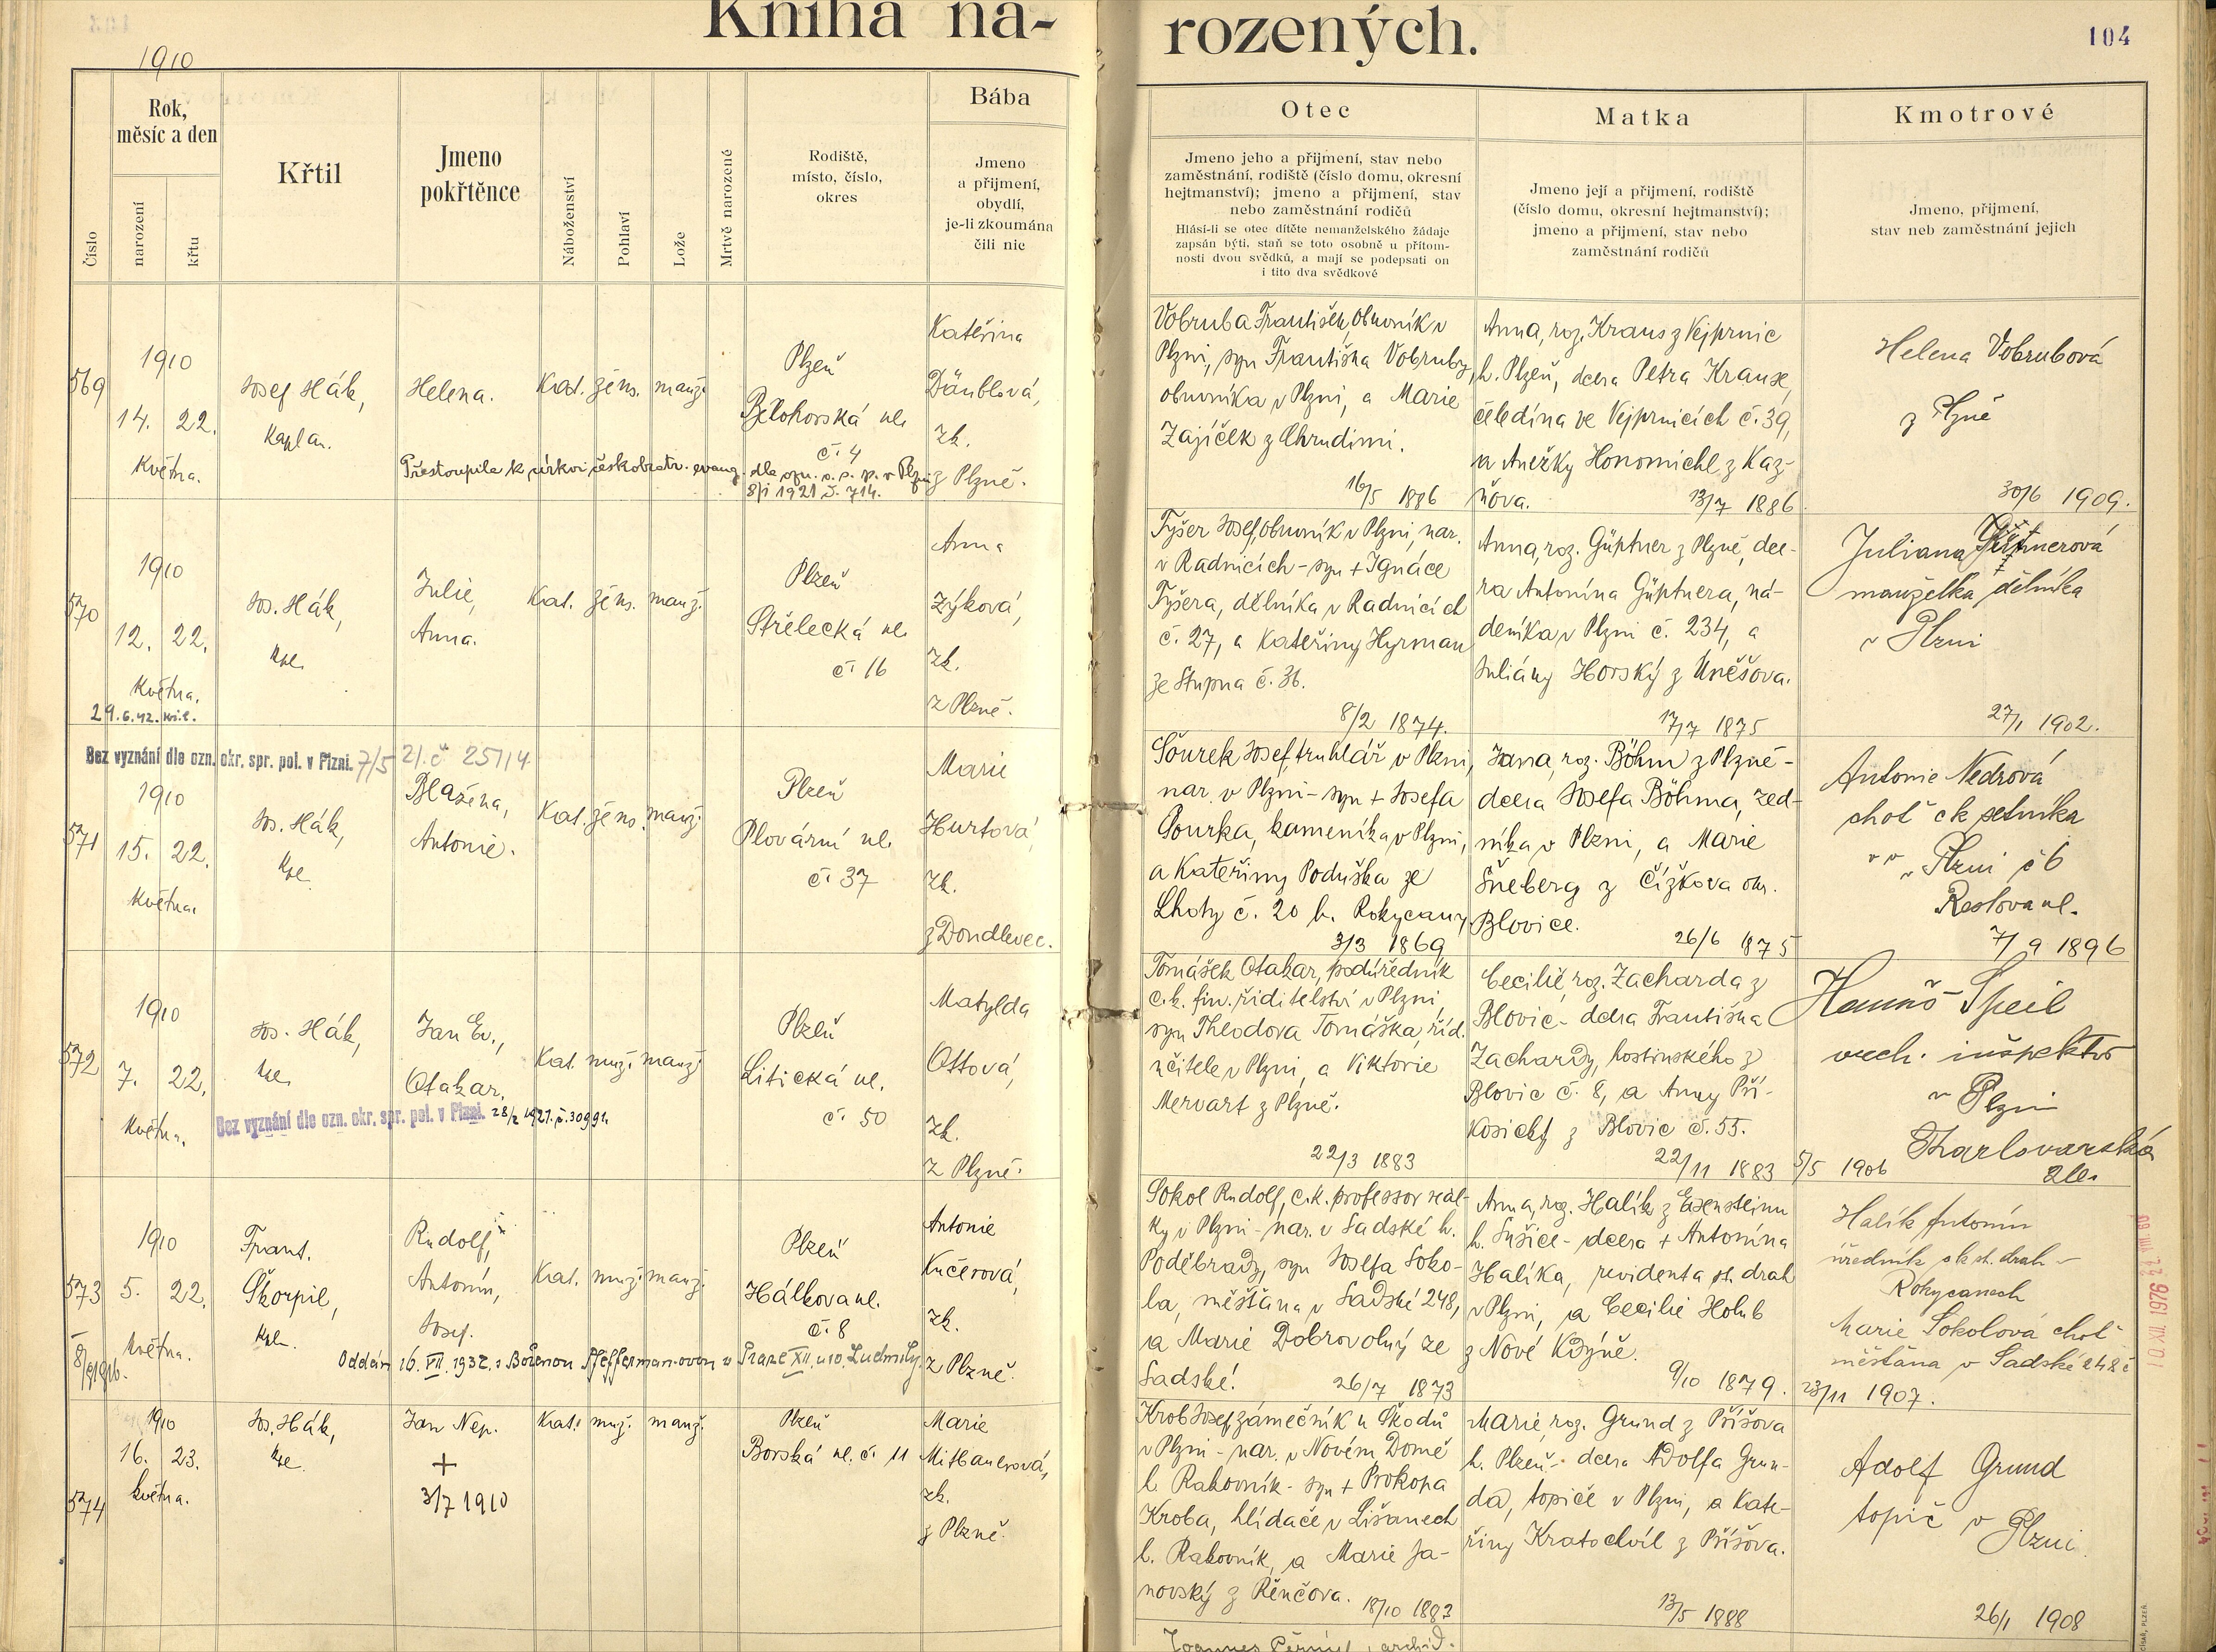 Kniha na-
rozených.
104
1910
Číslo
Rok,
měsíc a den
narození
křtu
Křtil
Jmeno
pokřtěnce
Náboženství
Pohlaví
Lože
Mrtvě narozené
Rodiště,
místo, číslo,
okres
Bába
Jmeno
a přijmení,
obydlí,
je-li zkoumána
čili nic
Otec
Jmeno jeho a přijmení, stav nebo
zaměstnání, rodiště (číslo domu, okresní
hejtmanství); jmeno a přijmení, stav
nebo zaměstnání rodičů
Hlásí-li se otec dítěte nemanželského žádaje
zapsán býti, staň se toto osobně u přítom-
nosti dvou svědků, a mají se podepsati on
i tito dva svědkové
Matka
Jmeno její a přijmení, rodiště
(číslo domu, okresní hejtmanství);
jmeno a přijmení, stav nebo
zaměstnání rodičů
Kmotrové
Jmeno, přijmení,
stav neb zaměstnání jejich
569
1910
14. 22.
Května.
Josef Hák,
Kaplan.
Helena.
Kat. žens. manž.
Plzeň
Bělohorská ul.
č. 4
Přestoupila k církvi českobratr. evang. dla ozn. o. s. p. v Plzni
8/I 1921 č. 714.
Kateřina
Däublová,
zk.
z Plzně.
Vobruba František, obuvník v
Plzni, syn Františka Vobruby,
obuvníka v Plzni, a Marie
Zajíček z Chrudimi.
16/5 1886
Anna, roz. Kraus z Vejprnic
h. Plzeň, dcera Petra Krause,
čeledína ve Vejprnicích č. 39,
a Anežky Honomichl z Kaz-
ňova. 13/7 1886
Helena Vobrubová
z Plzně
30/6 1909.
570
1910
12. 22.
Května.
29.6.42.
Jos. Hák,
kpl.
Julie,
Anna.
Kat. žens. manž.
Plzeň
Střelecká ul.
č. 16
Anna
Zýková,
zk.
z Plzně.
Tyšer Josef, obuvník v Plzni, nar.
v Radnicích - syn + Ignáce
Tyšera, dělníka v Radnicích
č. 27, a Kateřiny Hyrman
ze Stupna č. 36.
8/2 1874.
Anna, roz. Güptner z Plzně, dce-
ra Antonína Güptnera, ná-
deníka v Plzni č. 234, a
Juliány Horský z Úněšova.
17/7 1875
Juliana
manželka dělníka
v Plzni
27/1 1902.
Bez vyznání dle ozn. okr. spr. pol. v Plzni. 7/5 21. č 25714
571
1910
15. 22.
Května.
Jos. Hák,
kpl.
Blažena,
Antonie.
Kat. žens. manž.
Plzeň
Plovární ul.
č. 37
Marie
Hurtová,
zk.
z Doudlevec.
Šourek Josef, truhlář v Plzni,
nar. v Plzni - syn + Josefa
Šourka, kameníka v Plzni,
a Kateřiny Poduška ze
Lhoty č. 20 h. Rokycany
3/3 1869
Jana, roz. Böhm z Plzně -
dcera Josefa Böhma, zed-
níka v Plzni, a Marie
Šneberg z Čížkova okr.
Blovice.
26/6 1875
Antonie Nedrová
choť ck setníka
v v v Plzni č 6
Reslova ul.
7/9 1896
572
1910
7. 22.
Května.
Jos. Hák,
kpl.
Jan Ev.,
Otakar.
Bez vyznání dle ozn. okr. spr. pol. v Plzni. 28/2 1921. č. 30991.
Kat. muž. manž.
Plzeň
Litická ul.
č. 50
Matylda
Ottová,
zk.
z Plzně.
Tomášek Otakar, podúředník
c. k. fin. ředitelství v Plzni,
syn Theodora Tomáška, říd.
učitele v Plzni, a Viktorie
Mervart z Plzně.
22/3 1883
Cecilie, roz. Zacharda z
Blovic - dcera Františka
Zachardy, hostinského z
Blovic č. 8, a Anny Pří-
kosický z Blovic č. 55.
22/11 1883
Hanuš Speil
vrch. inspektor
v Plzni
Karlovarská
ul.
5/5 1906
573
1910
5. 22.
Května.
Frant.
Škorpil,
kpl.
Rudolf,
Antonín,
Josef.
Kat. muž. manž.
Plzeň
Hálkova ul.
č. 8
Antonie
Kučerová,
zk.
z Plzně.
Oddán 16. VII. 1932. s Boženou Pfeffermanovou v Praze XII. u sv. Ludmily.
Sokol Rudolf, c. k. professor reál-
ky v Plzni - nar. v Sadské h.
Poděbrady, syn Josefa Soko-
la, měšťana v Sadské 248,
a Marie Dobrovolný ze
Sadské. 26/7 1873
Anna, roz. Halík z Eisensteinu
h. Sušice - dcera + Antonína
Halíka, revidenta st. drah
v Plzni, a Cecilie Holub
z Nové Kdýně.
9/10 1879.
Halík Antonín
úředník ck st. drah -
Rokycanech
Marie Sokolová choť
měšťana v Sadské 248 č
23/11 1907.
10. XII. 1976
574
1910
16. 23.
Května.
Jos. Hák,
kpl.
Jan Nep.
+
3/7 1910
Kat. muž. manž.
Plzeň
Borská ul. č. 11
Marie
Mitbauerová,
zk.
z Plzně.
Krob Josef, zámečník u Škodů
v Plzni - nar. v Novém Domě
h. Rakovník - syn + Prokopa
Kroba, hlídače v Lišanech
h. Rakovník, a Marie Ja-
novský z Řenčova. 18/10 1883
Marie, roz. Grund z Příšova
h. Plzeň - dcera Adolfa Grun-
da, topiče v Plzni, a Kate-
řiny Kratochvíl z Příšova.
13/5 1888
Adolf Grund
topič v Plzni
26/1 1908